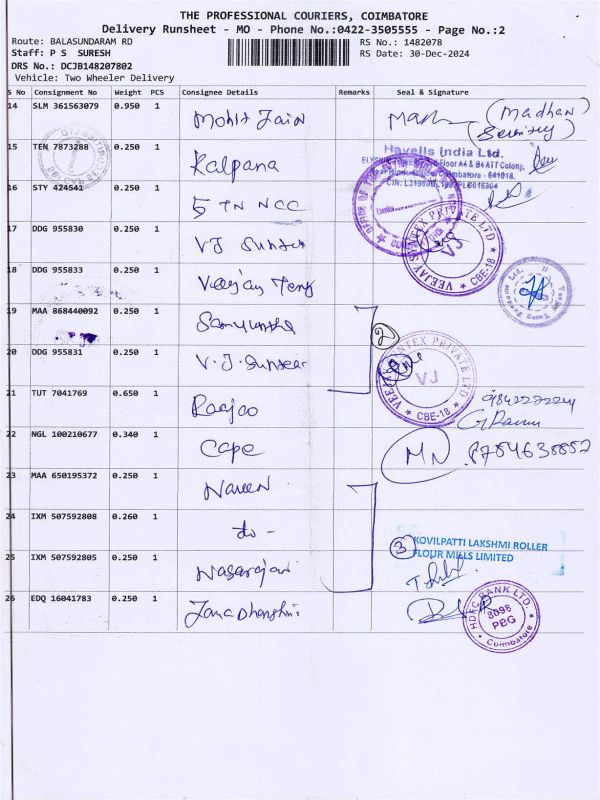 THE PROFESSIONAL COURIERS, COIMBATORE
Delivery Runsheet - MO - Phone No.:0422-3505555 - Page No.:2
Route: BALASUNDARAM RD
RS No.: 1482078
Staff: P S SURESH
RS Date: 30-Dec-2024
DRS No.: DCJB148207802
Vehicle: Two Wheeler Delivery
S No Consignment No Weight PCS Consignee Details Remarks Seal & Signature
14 SLM 361563079 0.950 1 Mohit Jain (Madhan)
15 TEN 7873288 0.250 1 Kalpana
Havells India Ltd.
Floor A4 & B4 ATT Colony,
Coimbatore - 641018.
16 STY 424541 0.250 1 5 TN NCC
17 DDG 955830 0.250 1 VJ
VEEJAY SYNTEX PRIVATE LTD
VJ
CBE-18
18 DDG 955833 0.250 1 Veejay
19 MAA 868440092 0.250 1 Samyuktha
2
20 DDG 955831 0.250 1 V.J.
VEEJAY SYNTEX PRIVATE LTD
VJ
CBE-18
21 TUT 7041769 0.650 1 Raejoo
22 NGL 100210677 0.340 1 Cape MN
23 MAA 650195372 0.250 1 Naveen
24 IXM 507592808 0.260 1 do -
3
KOVILPATTI LAKSHMI ROLLER
FLOUR MILLS LIMITED
25 IXM 507592805 0.250 1 Nagarajan
26 EDQ 16041783 0.250 1
HDFC BANK LTD.
8098
PBG
Coimbatore